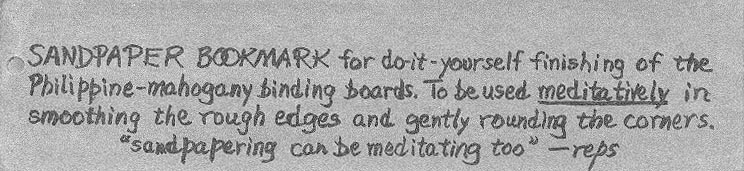 SANDPAPER BOOKMARK for do-it-yourself finishing of the
Philippine-mahogany binding boards. To be used meditatively in
smoothing the rough edges and gently rounding the corners.
"sandpapering can be meditating too" — reps